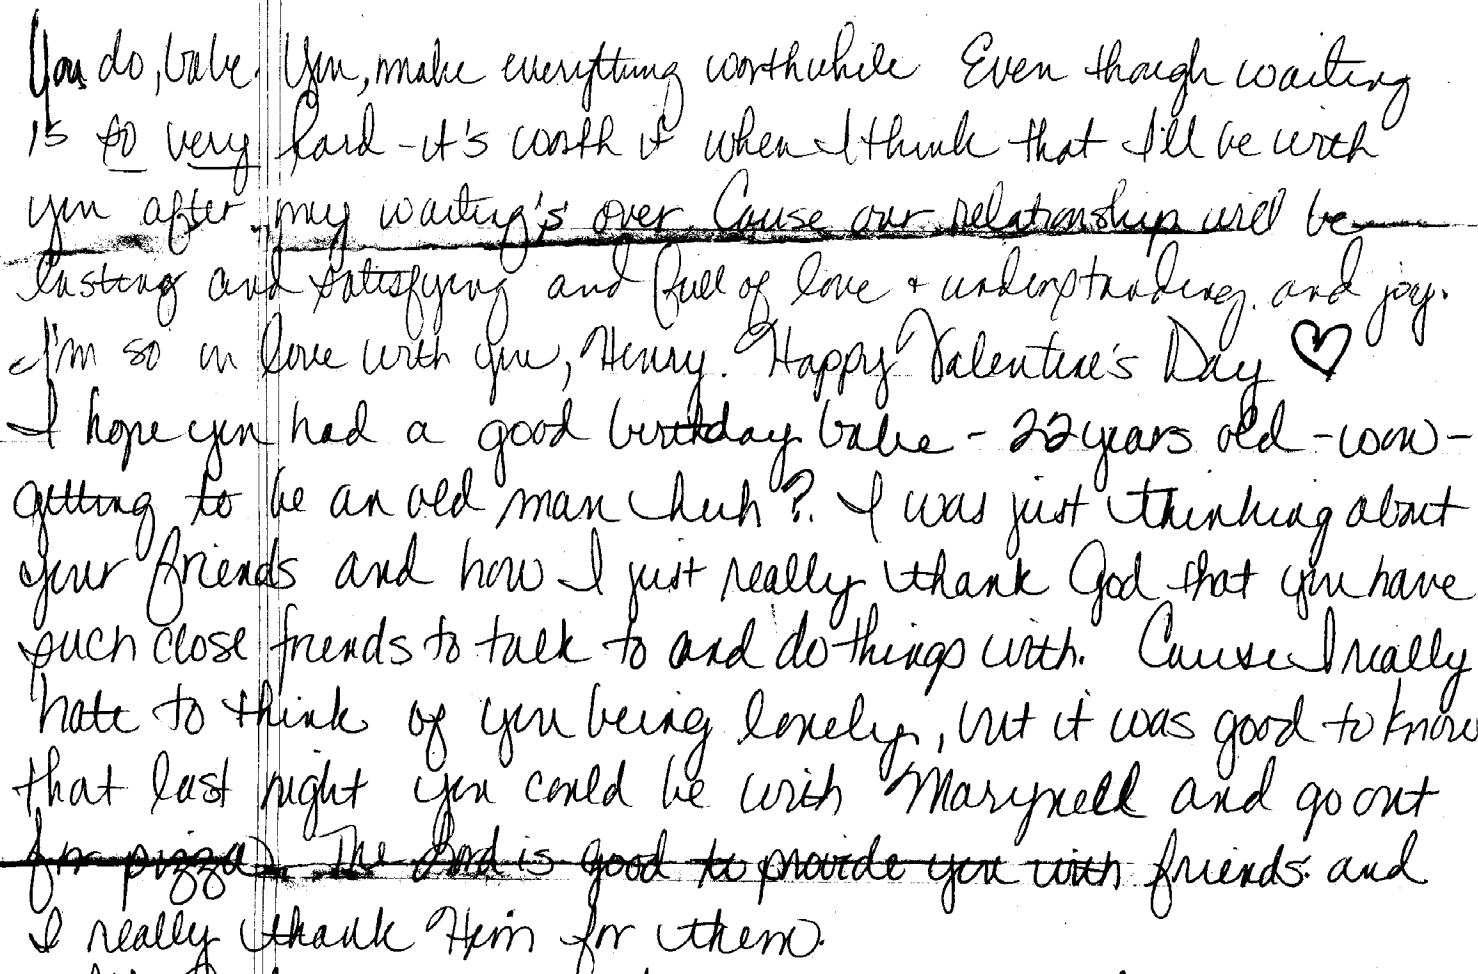 You do, babe. You, make everything worthwhile. Even though waiting
is so very hard - it's worth it when I think that I'll be with
you after my waiting's over. Cause our relationship will be
lasting and satisfying and full of love + understanding and joy.
I'm so in love with you, Henry. Happy Valentine's Day ♡
I hope you had a good birthday babe - 22 years old - wow -
getting to be an old man huh? I was just thinking about
your friends and how I just really thank God that you have
such close friends to talk to and do things with. Cause I really
hate to think of you being lonely, but it was good to know
that last night you could be with Marynell and go out
for pizza. The Lord is good to provide you with friends and
I really thank Him for them.